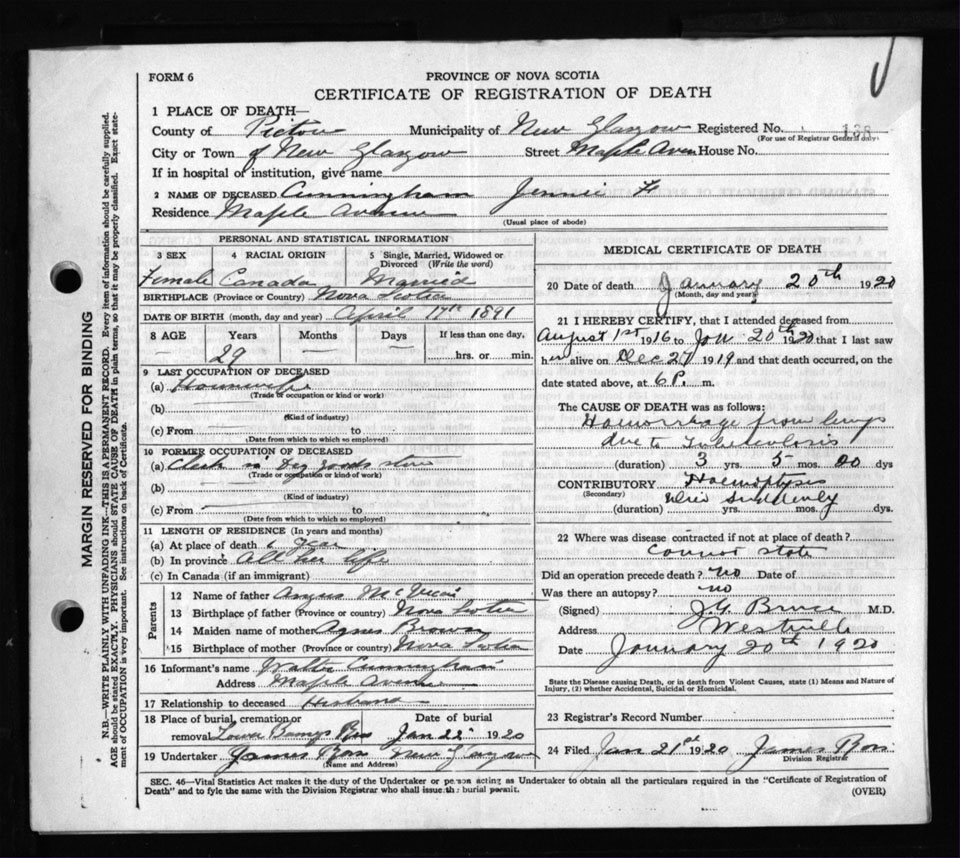 FORM 6
PROVINCE OF NOVA SCOTIA
CERTIFICATE OF REGISTRATION OF DEATH
1 PLACE OF DEATH—
County of Pictou Municipality of New Glasgow Registered No. 138
(For use of Registrar General only)
City or Town of New Glasgow Street Maple Aven House No.
If in hospital or institution, give name
2 NAME OF DECEASED Cunningham Jennie H
Residence Maple Avenue (Usual place of abode)
PERSONAL AND STATISTICAL INFORMATION
3 SEX 4 RACIAL ORIGIN 5 Single, Married, Widowed or Divorced (Write the word)
Female Canada Married
BIRTHPLACE (Province or Country) Nova Scotia
DATE OF BIRTH (month, day and year) April 17th 1891
8 AGE Years Months Days If less than one day,
29 — — hrs. or min.
9 LAST OCCUPATION OF DECEASED
(a) Housewife
(Trade or occupation or kind or work)
(b)
(Kind of industry)
(c) From to
(Date from which to which so employed)
10 FORMER OCCUPATION OF DECEASED
(a) Clerk in Dry goods store
(Trade or occupation or kind of work)
(b)
(Kind of industry)
(c) From to
(Date from which to which so employed)
11 LENGTH OF RESIDENCE (In years and months)
(a) At place of death year
(b) In province all her life
(c) In Canada (if an immigrant)
Parents
12 Name of father Angus
13 Birthplace of father (Province or country) Nova Scotia
14 Maiden name of mother Agnes Brown
15 Birthplace of mother (Province or country) Nova Scotia
16 Informant's name Walter Cunningham
Address Maple Avenue
17 Relationship to deceased Husband
18 Place of burial, cremation or removal Lower Date of burial Jan 22 1920
19 Undertaker James Ross New Glasgow
(Name and Address)
MEDICAL CERTIFICATE OF DEATH
20 Date of death January 20th 1920
(Month, day and year)
21 I HEREBY CERTIFY, that I attended deceased from
August 1st 1916 to Jan 20th 1920 that I last saw
her alive on Dec 27 1919 and that death occurred, on
date stated above, at 6 P. m.
The CAUSE OF DEATH was as follows:
Haemorrhage from lungs
due to Tuberculosis
(duration) 3 yrs. 5 mos. 00 dys
CONTRIBUTORY Haemoptysis
(Secondary) Died Suddenly
(duration) yrs. mos. dys.
22 Where was disease contracted if not at place of death?
Cannot state
Did an operation precede death? no Date of
Was there an autopsy? no
(Signed) Bruce M.D.
Address Westville
Date January 20th 1920
State the Disease causing Death, or in death from Violent Causes, state (1) Means and Nature of
Injury, (2) whether Accidental, Suicidal or Homicidal.
23 Registrar's Record Number
24 Filed Jan 21st 1920 James Ross
Division Registrar
SEC. 46—Vital Statistics Act makes it the duty of the Undertaker or person acting as Undertaker to obtain all the particulars required in the "Certificate of Registration of
Death" and to fyle the same with the Division Registrar who shall issue the burial permit. (OVER)
MARGIN RESERVED FOR BINDING
N.B.—WRITE PLAINLY WITH UNFADING INK—THIS IS A PERMANENT RECORD. Every item of information should be carefully supplied.
AGE should be stated EXACTLY. PHYSICIANS should STATE CAUSE OF DEATH in plain terms, so that it may be properly classified. Exact state-
ment of OCCUPATION is very important. See instructions on back of Certificate.